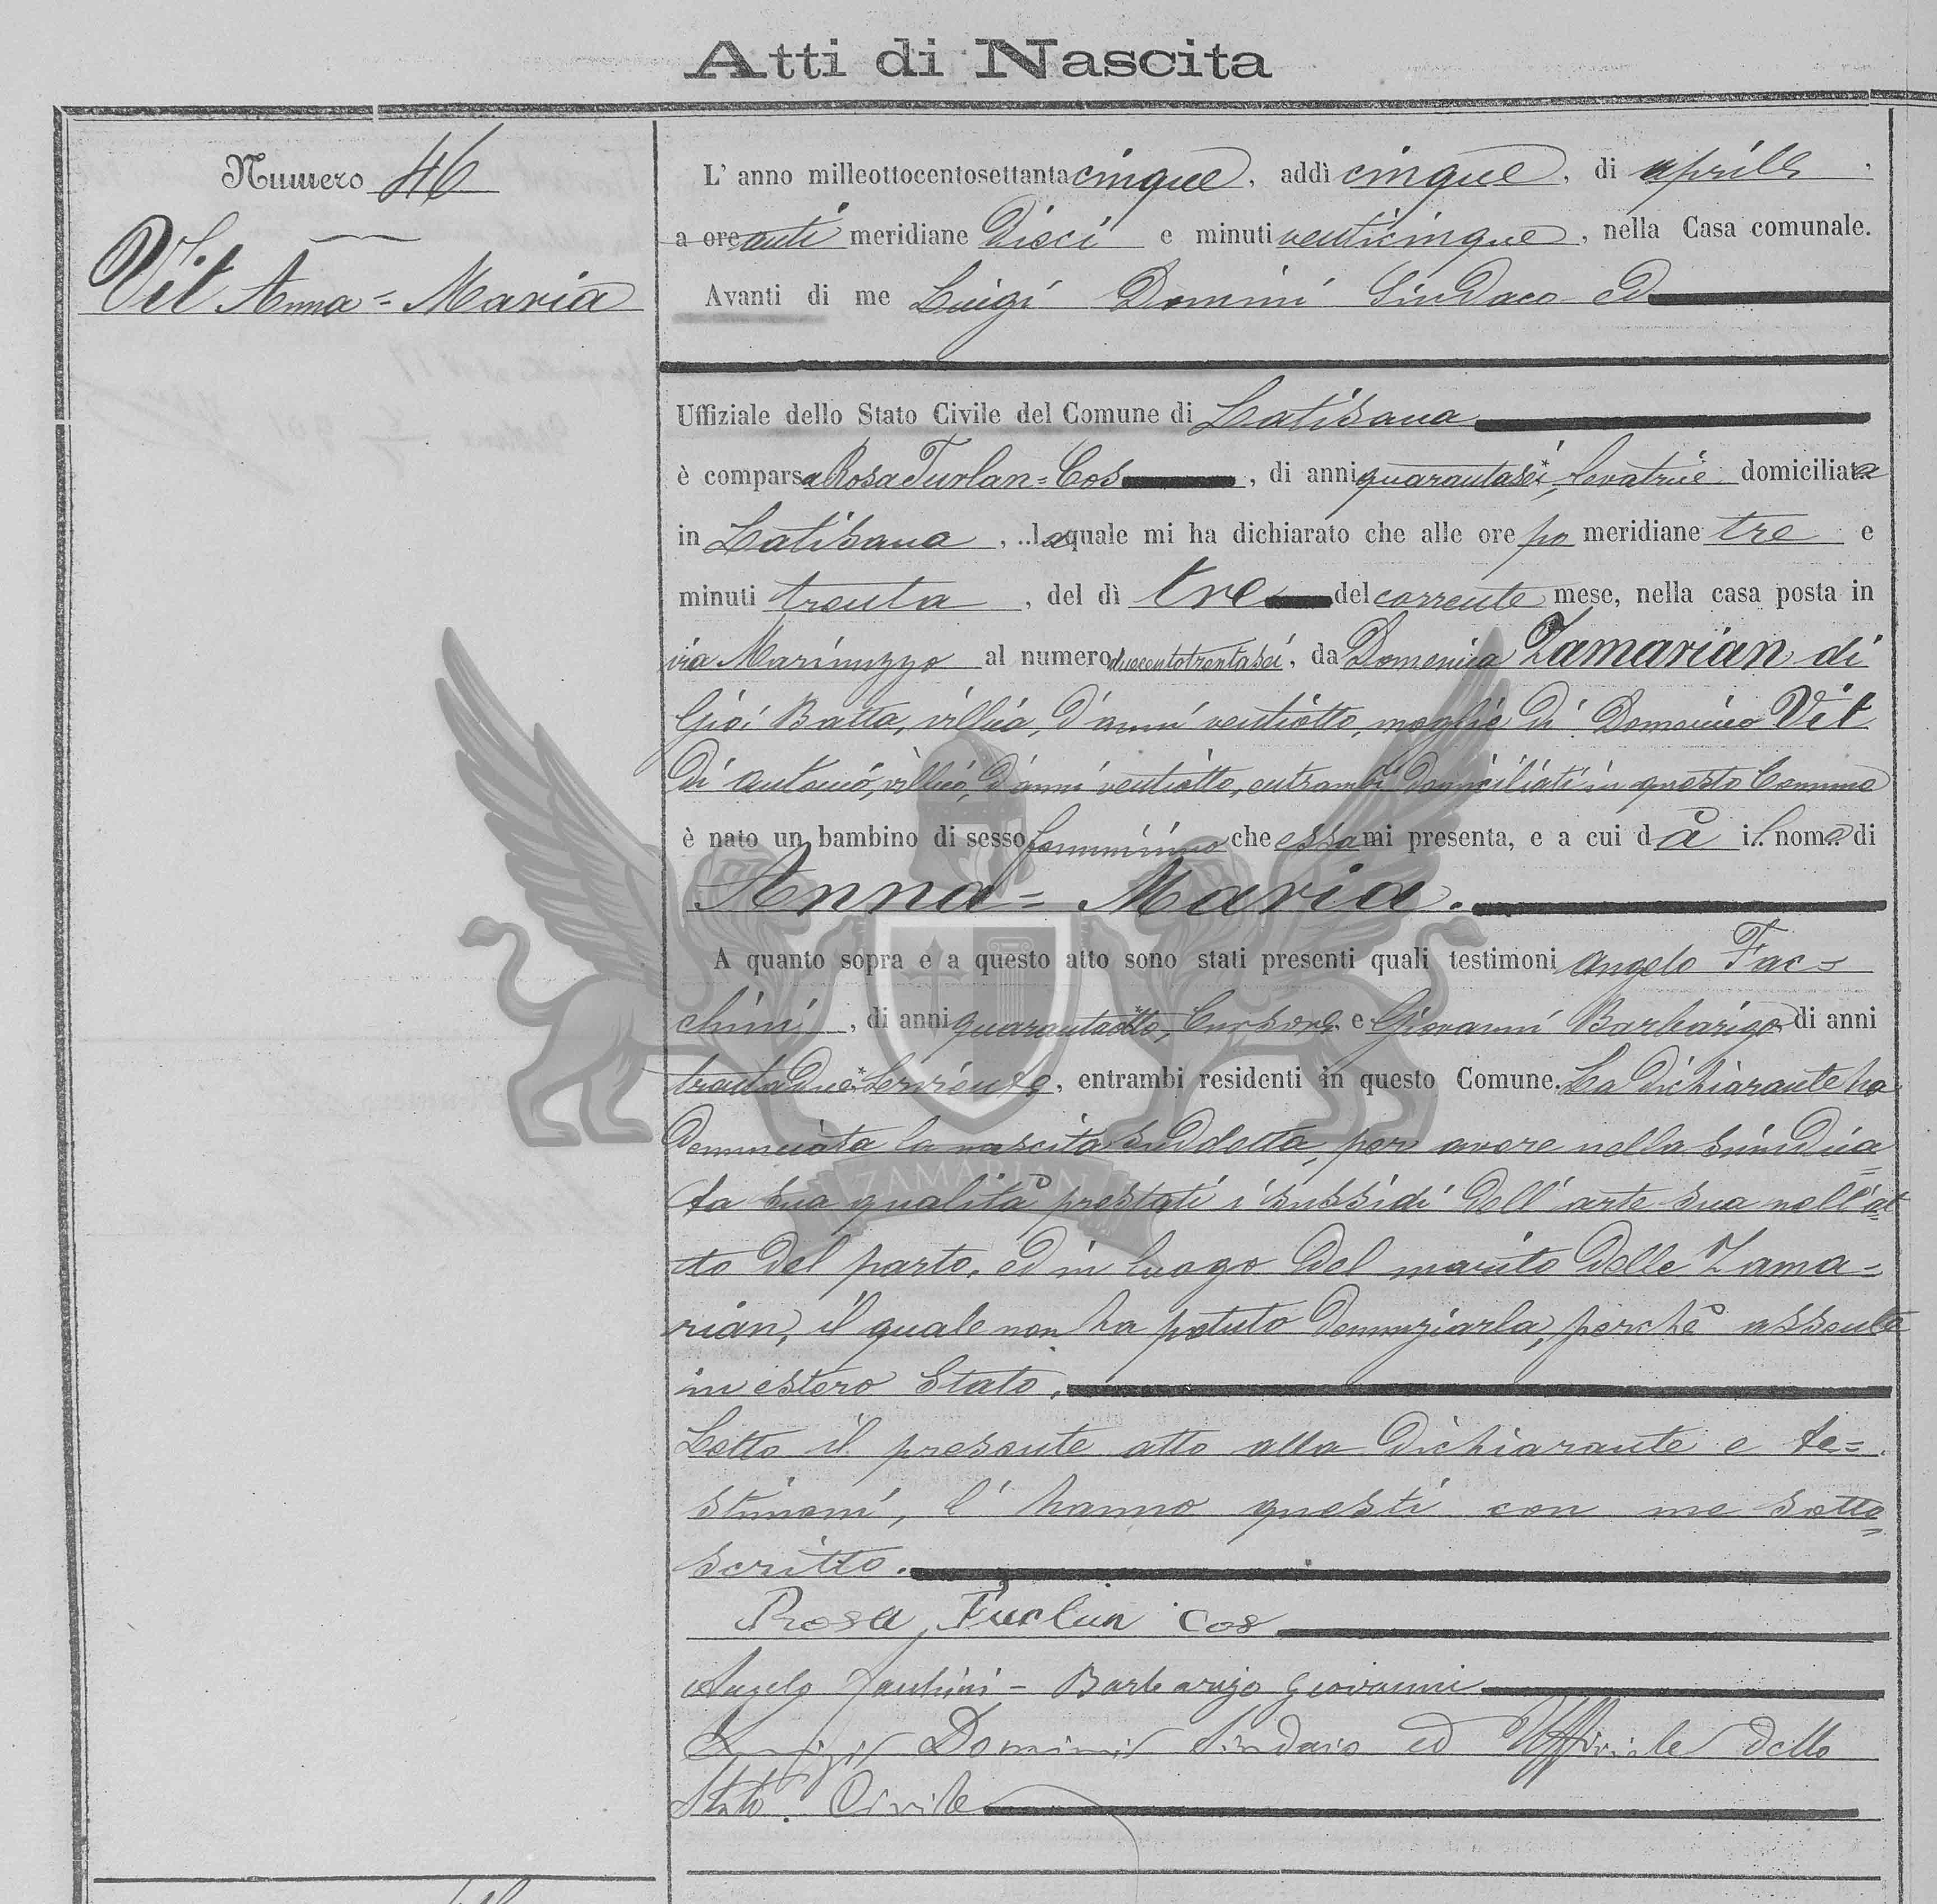 Atti di Nascita
Numero 46
Vit Anna = Maria
L' anno milleottocentosettantacinque, addì cinque, di aprile,
a ore anti meridiane dieci e minuti venticinque, nella Casa comunale.
Avanti di me Luigi Domini Sindaco ed
Uffiziale dello Stato Civile del Comune di Latisana
è comparsa Rosa Furlan = Cos, di anni quarantasei, levatrice domiciliata
in Latisana, la quale mi ha dichiarato che alle ore po meridiane tre e
minuti trenta, del dì tre del corrente mese, nella casa posta in
via Marinuzzo al numero duecentotrentasei, da Domenica Zamarian di
Gio: Batta, villica, d'anni ventiotto, moglie di Domenico Vit
di Antonio, villico, d'anni ventiotto, entrambi domiciliati in questo Comune
è nato un bambino di sesso femminino che essa mi presenta, e a cui dà il nome di
Anna = Maria.
A quanto sopra e a questo atto sono stati presenti quali testimoni Angelo Fac=
chini, di anni quarantaotto, Cursore e Giovanni Barbarigo di anni
trentadue, Servente, entrambi residenti in questo Comune. La dichiarante ha
denunciata la nascita suddetta, per avere nella suindica=
ta sua qualità prestati i sussidi dell'arte sua nell'at=
to del parto, ed in luogo del marito delle Zama=
rian, il quale non ha potuto denunziarla, perchè assente
in estero Stato.
Letto il presente atto alla dichiarante e te=
stimoni, l'hanno questi con me sotto=
scritto.
Rosa Furlan Cos
Angelo Facchini - Barbarigo Giovanni
Luigi Domini Sindaco ed Uffiziale dello
Stato Civile
ZAMARIAN